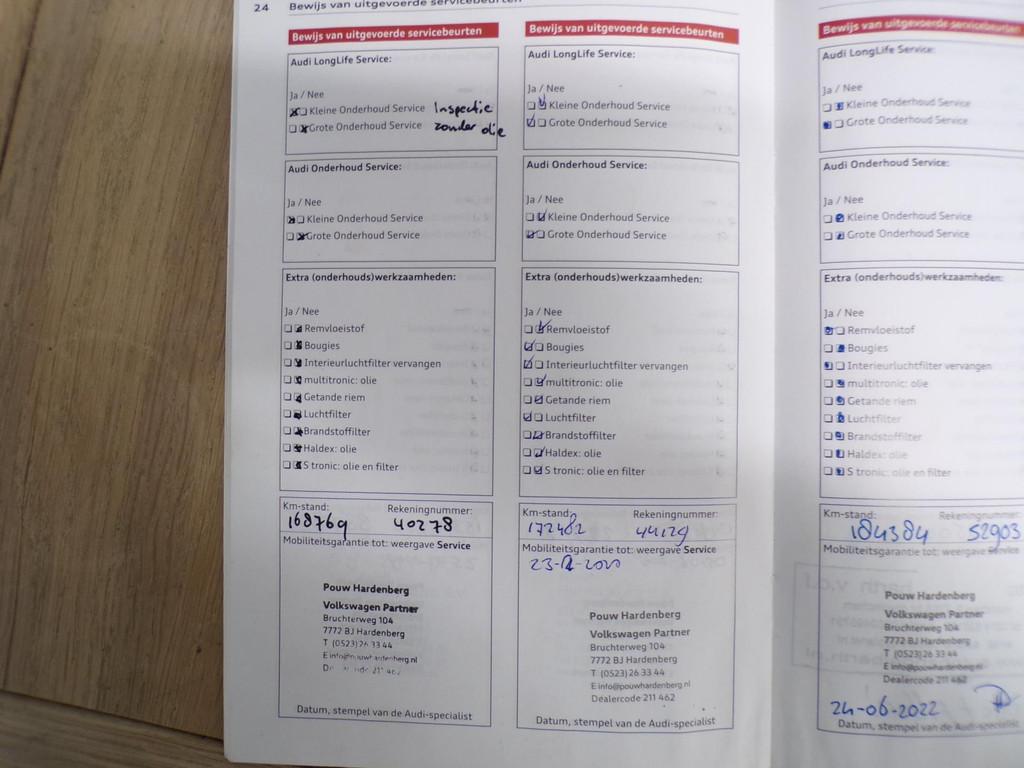 24 Bewijs van uitgevoerde servicebeurten
Bewijs van uitgevoerde servicebeurten
Audi LongLife Service:
Ja / Nee
Kleine Onderhoud Service Inspectie
Grote Onderhoud Service zonder olie
Audi Onderhoud Service:
Ja / Nee
Kleine Onderhoud Service
Grote Onderhoud Service
Extra (onderhouds)werkzaamheden:
Ja / Nee
Remvloeistof
Bougies
Interieurluchtfilter vervangen
multitronic: olie
Getande riem
Luchtfilter
Brandstoffilter
Haldex: olie
S tronic: olie en filter
Km-stand: Rekeningnummer:
168769 40278
Mobiliteitsgarantie tot: weergave Service
Pouw Hardenberg
Volkswagen Partner
Bruchterweg 104
7772 BJ Hardenberg
T (0523) 26 33 44
E info@pouwhardenberg.nl
Datum, stempel van de Audi-specialist
Bewijs van uitgevoerde servicebeurten
Audi LongLife Service:
Ja / Nee
Kleine Onderhoud Service
Grote Onderhoud Service
Audi Onderhoud Service:
Ja / Nee
Kleine Onderhoud Service
Grote Onderhoud Service
Extra (onderhouds)werkzaamheden:
Ja / Nee
Remvloeistof
Bougies
Interieurluchtfilter vervangen
multitronic: olie
Getande riem
Luchtfilter
Brandstoffilter
Haldex: olie
S tronic: olie en filter
Km-stand: Rekeningnummer:
172482 44129
Mobiliteitsgarantie tot: weergave Service
Pouw Hardenberg
Volkswagen Partner
Bruchterweg 104
7772 BJ Hardenberg
T (0523) 26 33 44
E info@pouwhardenberg.nl
Dealercode 211 462
Datum, stempel van de Audi-specialist
Bewijs van uitgevoerde servicebeurten
Audi LongLife Service:
Ja / Nee
Kleine Onderhoud Service
Grote Onderhoud Service
Audi Onderhoud Service:
Ja / Nee
Kleine Onderhoud Service
Grote Onderhoud Service
Extra (onderhouds)werkzaamheden:
Ja / Nee
Remvloeistof
Bougies
Interieurluchtfilter vervangen
multitronic: olie
Getande riem
Luchtfilter
Brandstoffilter
Haldex: olie
S tronic: olie en filter
Km-stand: Rekeningnummer:
184384 52903
Mobiliteitsgarantie tot: weergave Service
Pouw Hardenberg
Volkswagen Partner
Bruchterweg 104
7772 BJ Hardenberg
T (0523) 26 33 44
E info@pouwhardenberg.nl
Dealercode 211 462
24-06-2022
Datum, stempel van de Audi-specialist